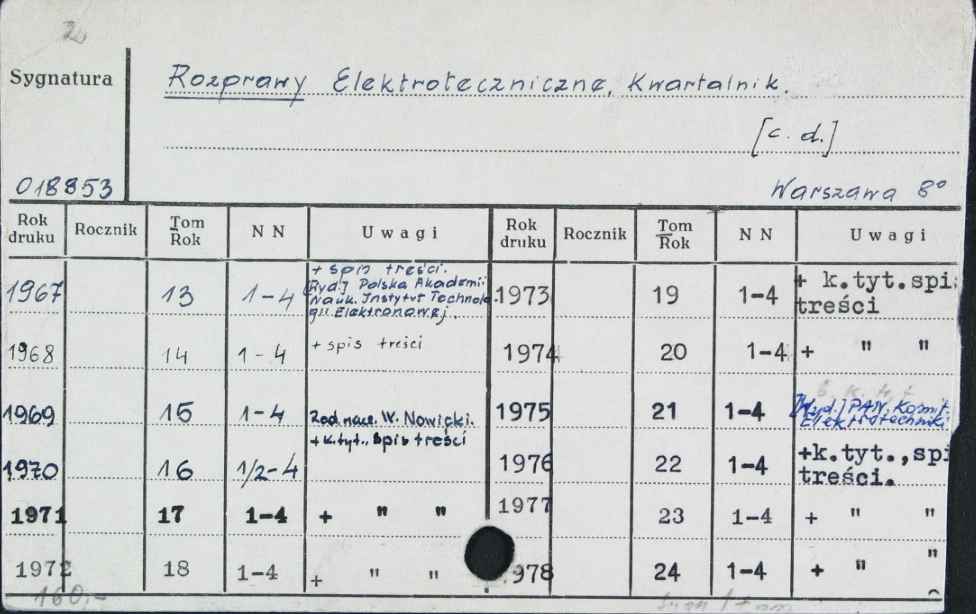 2
Sygnatura
Rozprawy Elektroteczniczne, Kwartalnik.
[c. d.]
018853
Warszawa 8°
Rok druku Rocznik Tom Rok N N Uwagi Rok druku Rocznik Tom Rok N N Uwagi
1967 13 1-4 + spis treści. [Wyd.] Polska Akademii Nauk. Instytut Technolo gii Elektronowej. 1973 19 1-4 + k.tyt.spis treści
1968 14 1-4 + spis treści 1974 20 1-4 + " "
1969 15 1-4 Red nacz. W. Nowicki. + k.tyt., spis treści 1975 21 1-4 [Wyd.] PAN. Komit. Elektrotechniki
1970 16 1/2-4 1976 22 1-4 +k.tyt.,spi treści.
1971 17 1-4 + " " 1977 23 1-4 + " "
1972 18 1-4 + " " 978 24 1-4 + " "
160,-